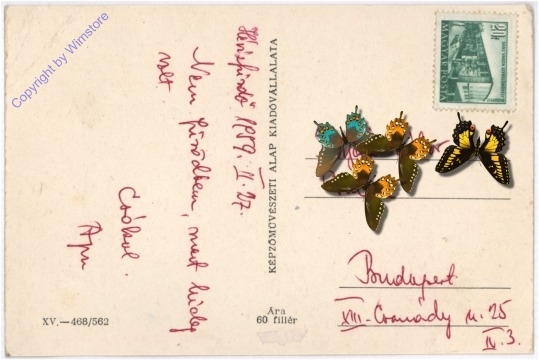 Copyright by Wimstore
Hévízfürdő 1959. II. 27.
Nem fürödtem, mert hideg
volt
Csókol.
Apu
KÉPZŐMŰVÉSZETI ALAP KIADÓVÁLLALATA
MAGYAR POSTA
Budapest
XIII. Csanády u. 25
IV. 3.
XV.—468/562
Ára
60 fillér